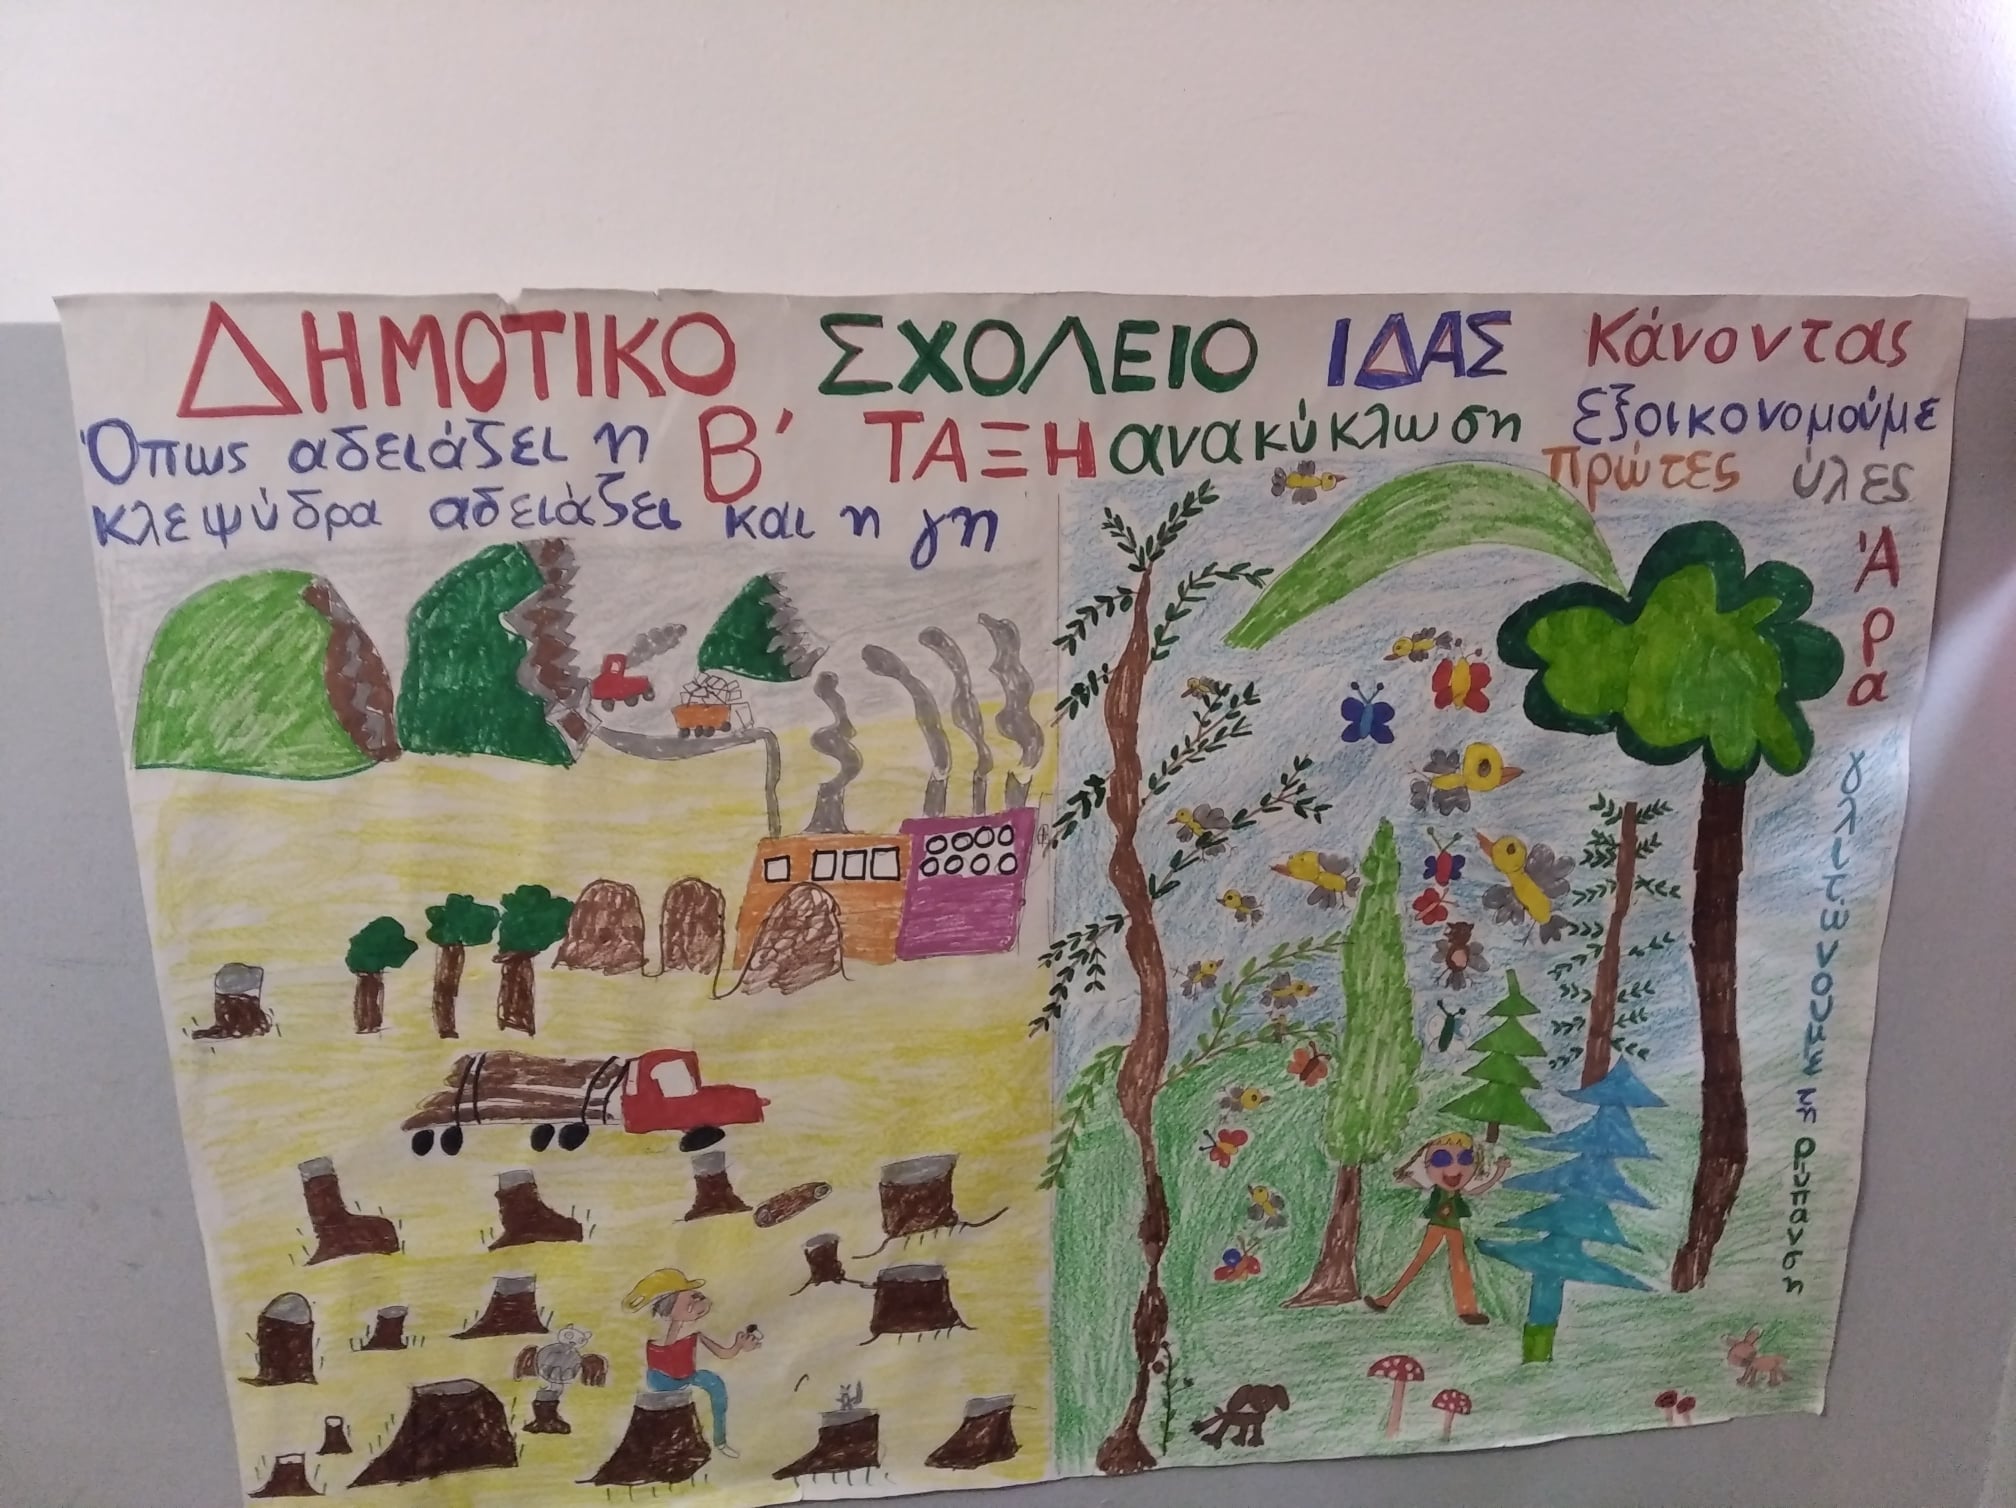 ΔΗΜΟΤΙΚΟ ΣΧΟΛΕΙΟ ΙΔΑΣ
Β΄ ΤΑΞΗ
Όπως αδειάζει η
κλεψύδρα αδειάζει και η γη
Κάνοντας
ανακύκλωση εξοικονομούμε
πρώτες ύλες
Άρα
γλιτώνουμε ρύπανση